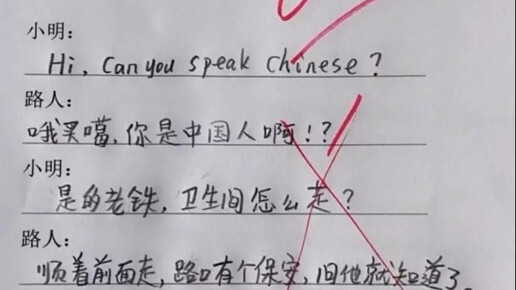 小明：
Hi, Can you speak Chinese?
路人：
哦买噶，你是中国人啊！？
小明：
是的老铁，卫生间怎么走？
路人：
顺着前面走，路口有个保安，问他就知道了。